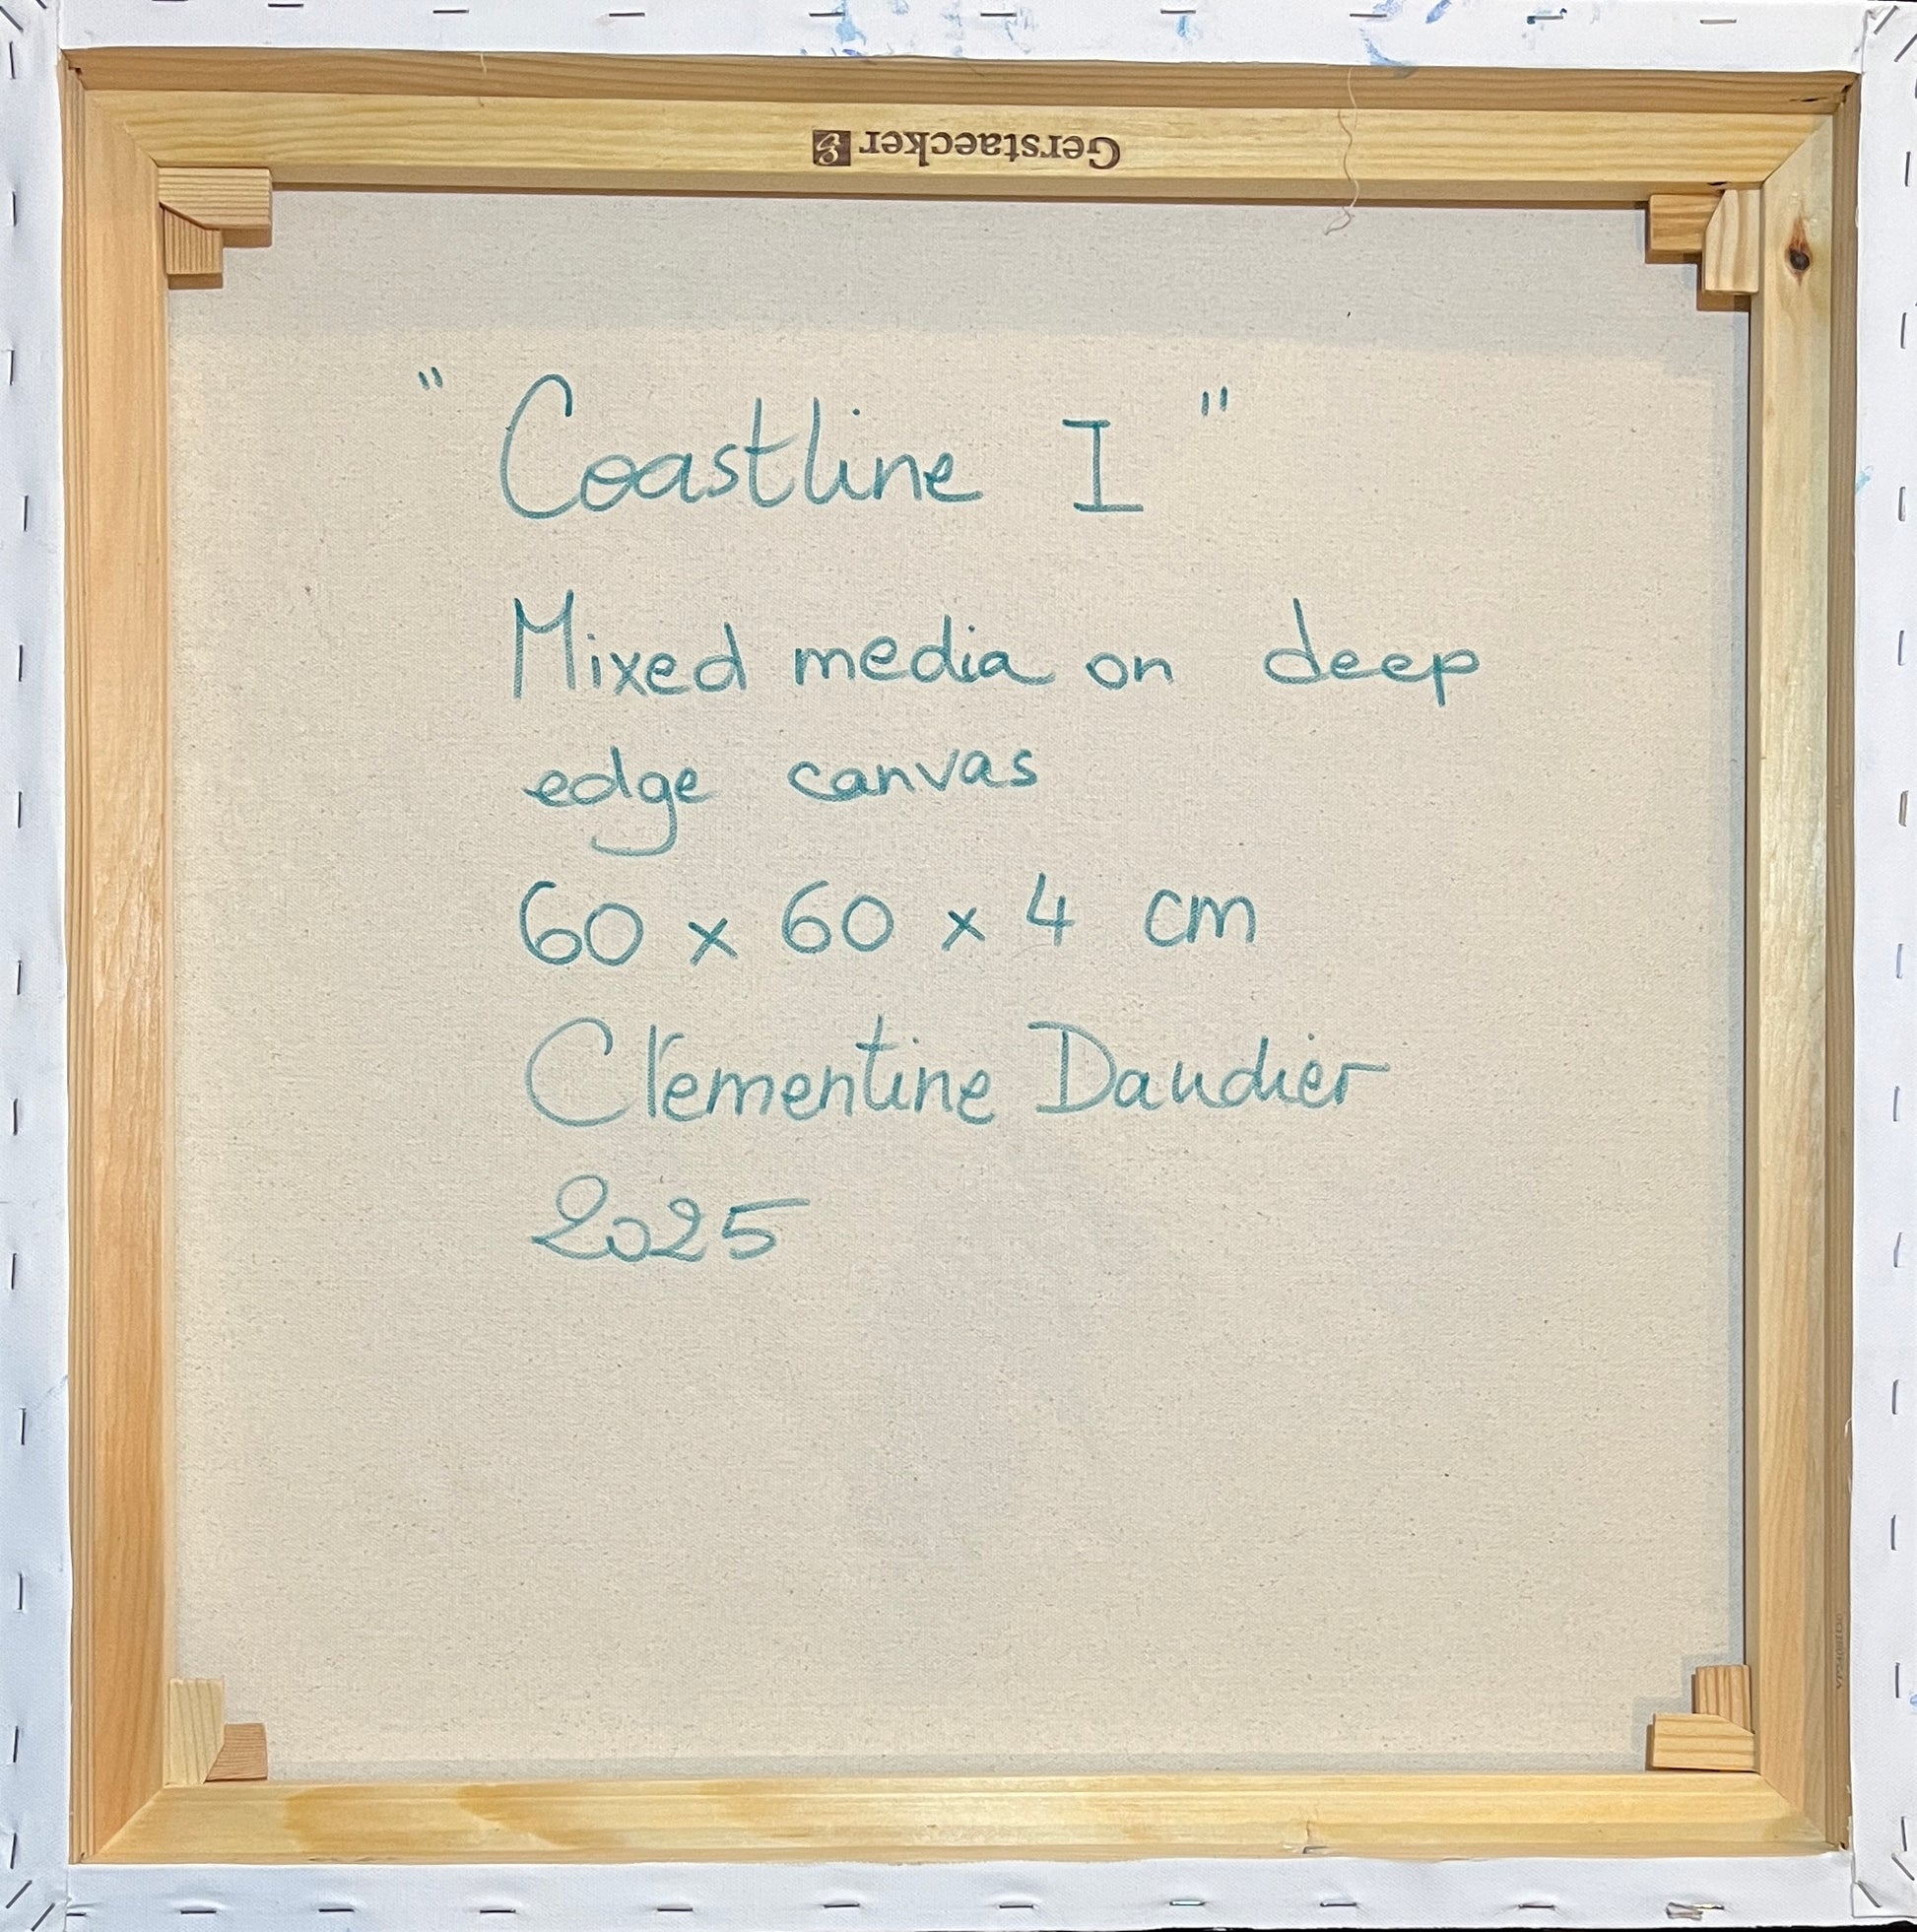 Gerstaecker
" Coastline I "
Mixed media on deep
edge canvas
60 x 60 x 4 cm
Clémentine Daudier
2025